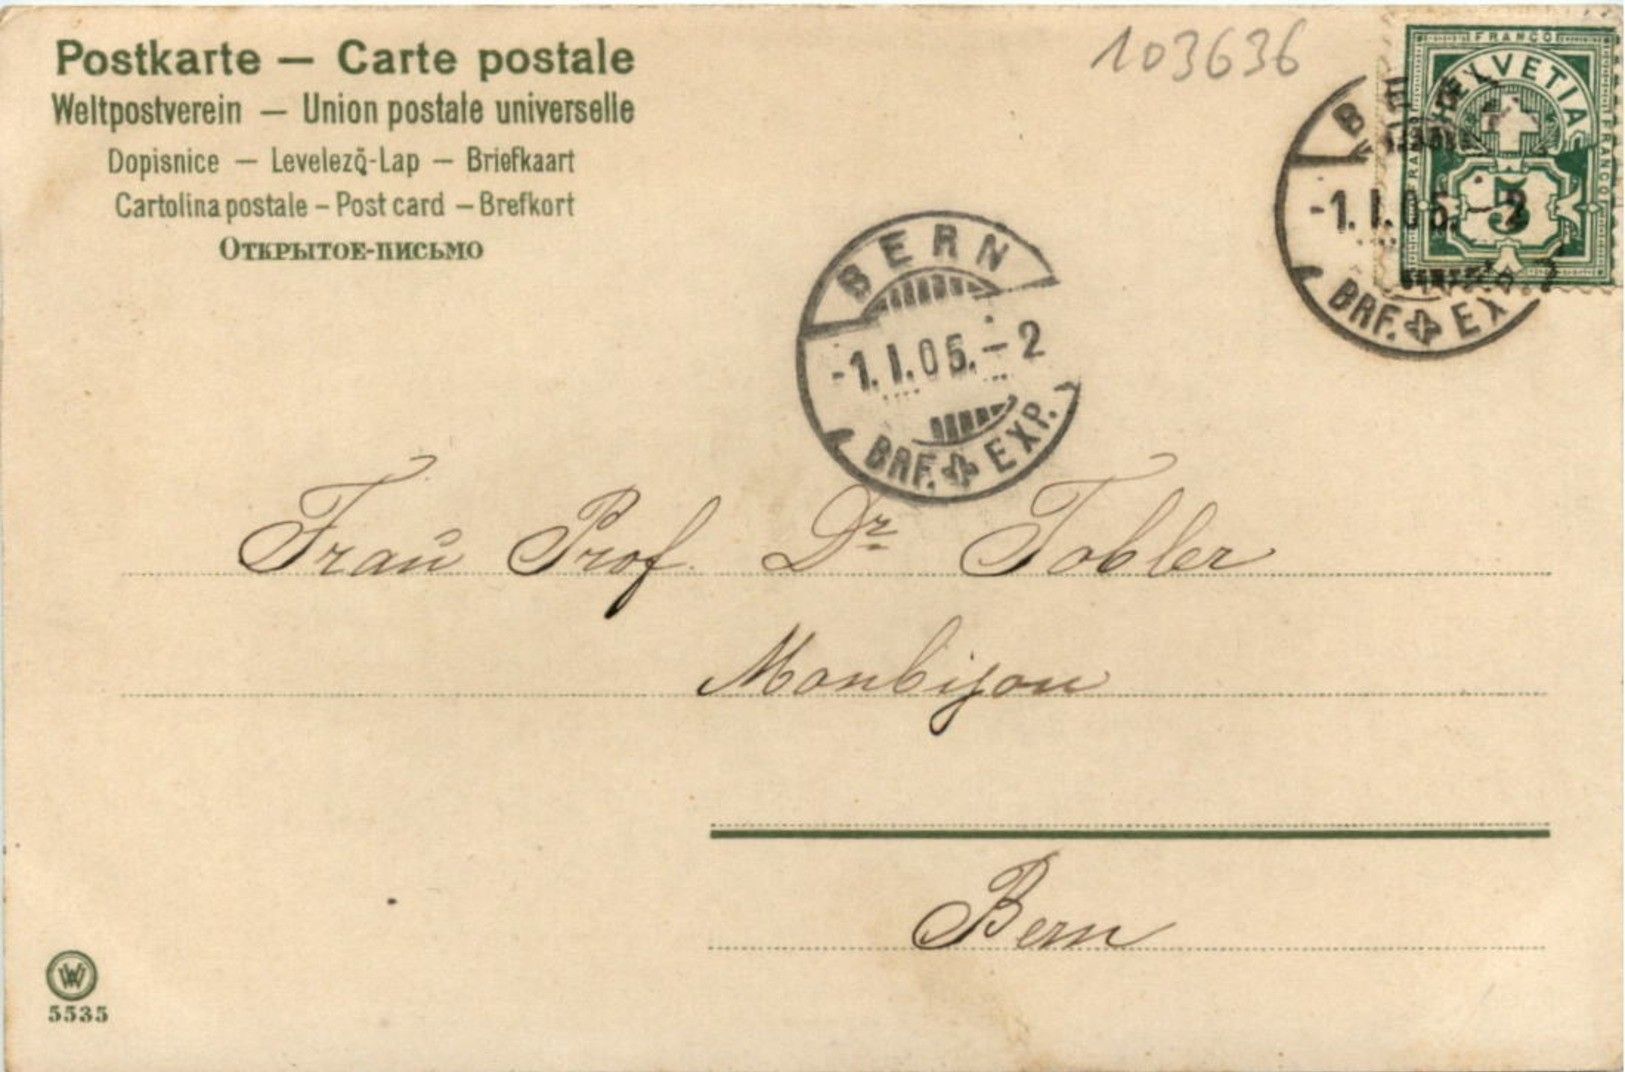 Postkarte — Carte postale
Weltpostverein — Union postale universelle
Dopisnice — Levelezõ-Lap — Briefkaart
Cartolina postale – Post card – Brefkort
Открытое-письмо
103636
FRANCO
HELVETIA
FRANCO
5
BERN
-1.I.05.-2
BRF. EXP.
BERN
-1.I.05.-2
BRF. EXP.
Frau Prof. Dr. Tobler
Monbijou
Bern
W
5535